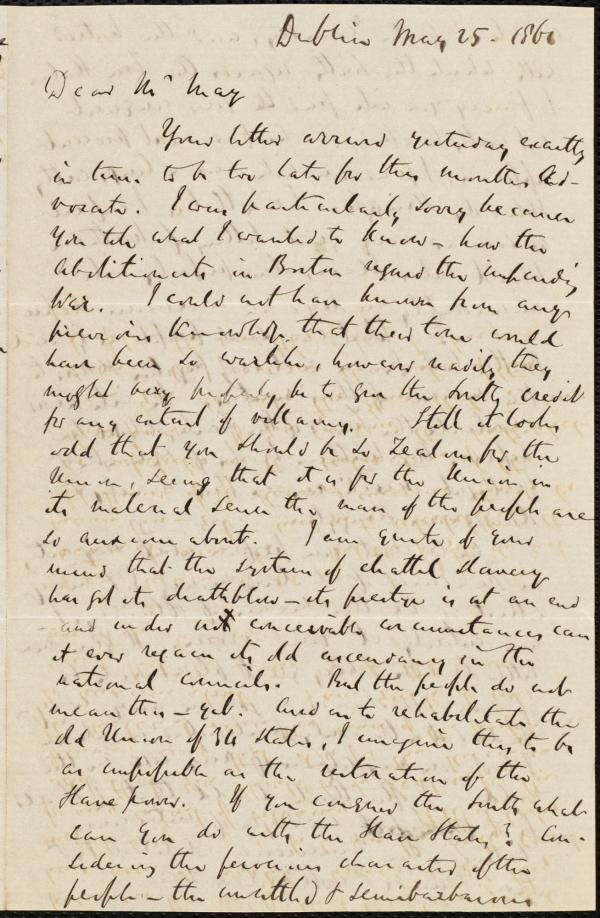 Dublin May 25 - 1861
Dear Mr May
Your letter arrived yesterday exactly
in time to be too late for this months Ad-
vocate. I was particularly sorry because
you tell what I wanted to know - how the
abolitionists in Boston regard the impending
War. I could not have known from any
previous knowledge that their tone would
have been so warlike, however readily they
might very properly be to give the South credit
for any extent of villainy. Still it looks
odd that you should be so zealous for the
Union, seeing that it is for the Union in
its material sense the mass of the people are
so anxious about. I am quite of your
mind that the system of chattel slavery
has got its deathblow - its prestige is at an end
- and under no conceivable circumstances can
it ever regain its old ascendancy in the
national councils. But the people do not
mean this - yet. And as to rehabilitate the
old Union of 34 States, I imagine this to be
as impossible as the restoration of the
Slave power. If you conquer the South what
can you do with the Slave States? Con-
sidering the ferocious character of the
people - the unsettled & semibarbarous